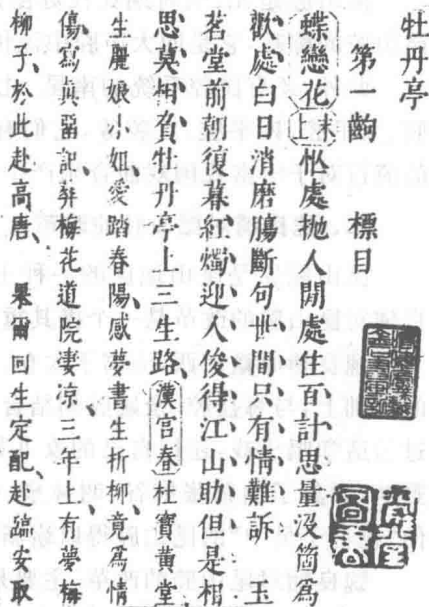 牡丹亭
第齣 標目
蝶戀花末上忙處抛人閒處住百計思量沒箇爲
歡處白日消磨腸斷句世間只有情難訴 玉
茗堂前朝復暮紅燭迎人俊得江山助但是相
思莫相負牡丹亭上三生路漢宮春杜寶黃堂
生麗娘小姐愛踏春陽感夢書生折柳竟爲情
傷寫真畱記葬梅花道院淒涼、三年上有夢梅
柳子、於此赴高唐、果爾回生定配、赴臨安取